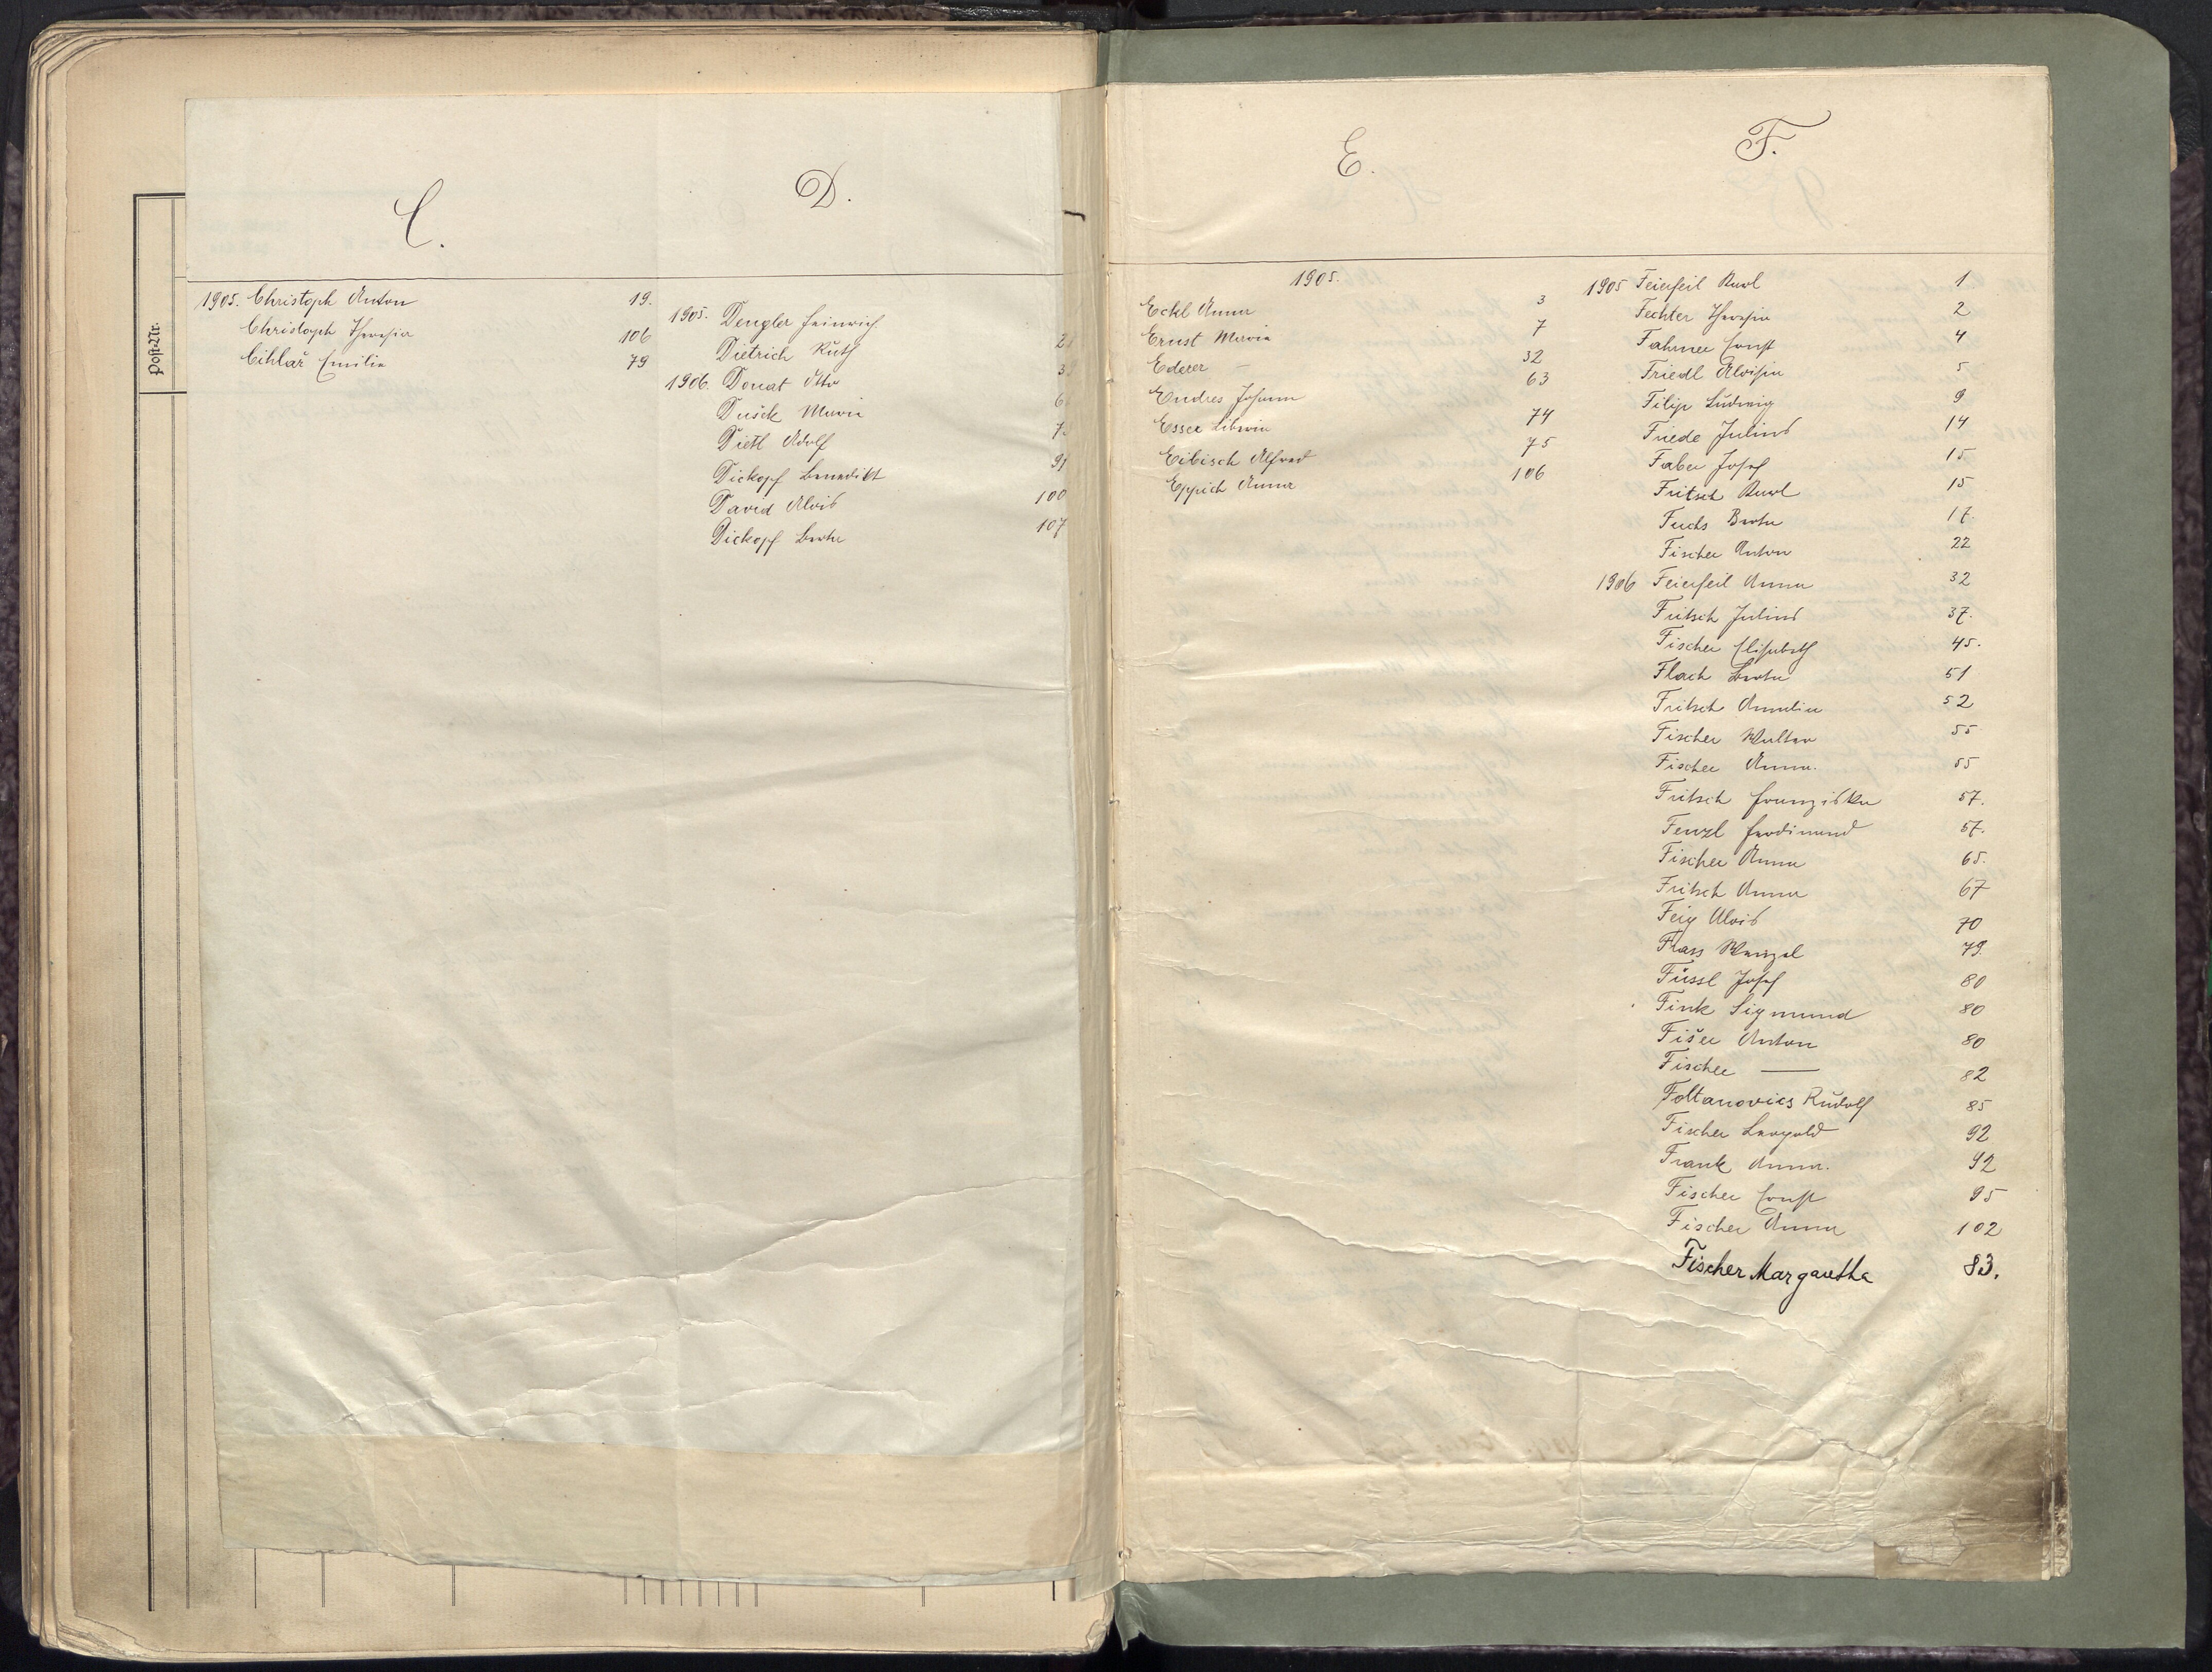 Post-Nr.
C.
1905. Christoph Anton 19.
Christoph Theresia 106
Cihlař Emilie 79
D.
1905. Dengler Heinrich 2
Dietrich Ruth 3
1906. Donat Otto 6
Dušek Maria 7
Dietl Adolf 91
Dickopf Benedikt 100
David Alois 107
Dickopf Berta
E.
1905.
Eckl Anna 3
Ernst Maria 7
Ederer — 32
Endres Johann 63
Esser 74
Eibisch Alfred 75
Eppich Anna 106
F.
1905 Feierfeil Karl 1
Fechter Theresia 2
Fahrner Ernst 4
Friedl Aloisia 5
Filip Ludwig 9
Friede Julius 14
Faber Josef 15
Fritsch Karl 15
Fuchs Berta 17.
Fischer Anton 22
1906 Feierfeil Anna 32
Fritsch Julius 37.
Fischer Elisabeth 45.
Flach Berta 51
Fritsch Amalia 52
Fischer Walter 55
Fischer Anna. 55
Fritsch Franziska 57.
Fenzl Ferdinand 57.
Fischer Anna 65.
Fritsch Anna 67
Feig Alois 70
Frass Wenzel 79.
Füssl Josef 80
Fink Sigmund 80
Fišer Anton 80
Fischer — 82
Foltanovics Rudolf 85
Fischer Leopold 92
Frank Anna. 92
Fischer Ernst 95
Fischer Anna 102
Fischer Margaretha 83.